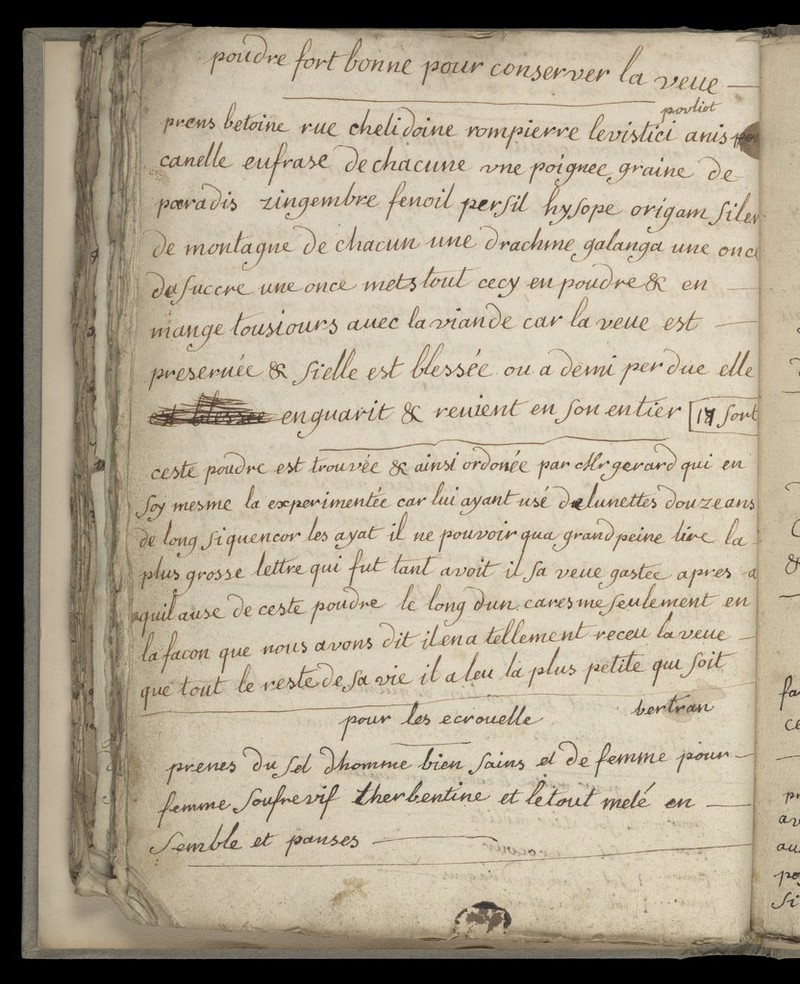 poudre fort bonne pour conserver la veue
pouliot
prens betoine rue chelidoine rompierre levistici anis
canelle eufrase de chacune vne poignee graine de
paradis zingembre fenoil persil hysope origam siler
de montagne de chacun une drachme galanga une once
du succre une once mets tout cecy en poudre & en
mange tousiours auec la viande car la veue est
preseruée & sielle est blessée ou a demi perdue elle
est blessee enguarit & reuient en son entier 17 sort
ceste poudre est trouvée & ainsi ordonée par Mr gerard qui en
soy mesme la experimentée car lui ayant usé de lunettes douze ans
de long si quencor les ayat il ne pouvoir qua grand peine lire la
plus grosse lettre qui fut tant avoit il sa veue gastee apres
quil a use de ceste poudre le long dun caresme seulement en
la facon que nous avons dit il en a tellement receu la veue
que tout le reste de sa vie il a leu la plus petite qui soit
pour les ecrouelle bertran
prenes du sel dhomme bien sains et de femme pour
femme soufre vif therbentine et le tout melé en
semble et panses